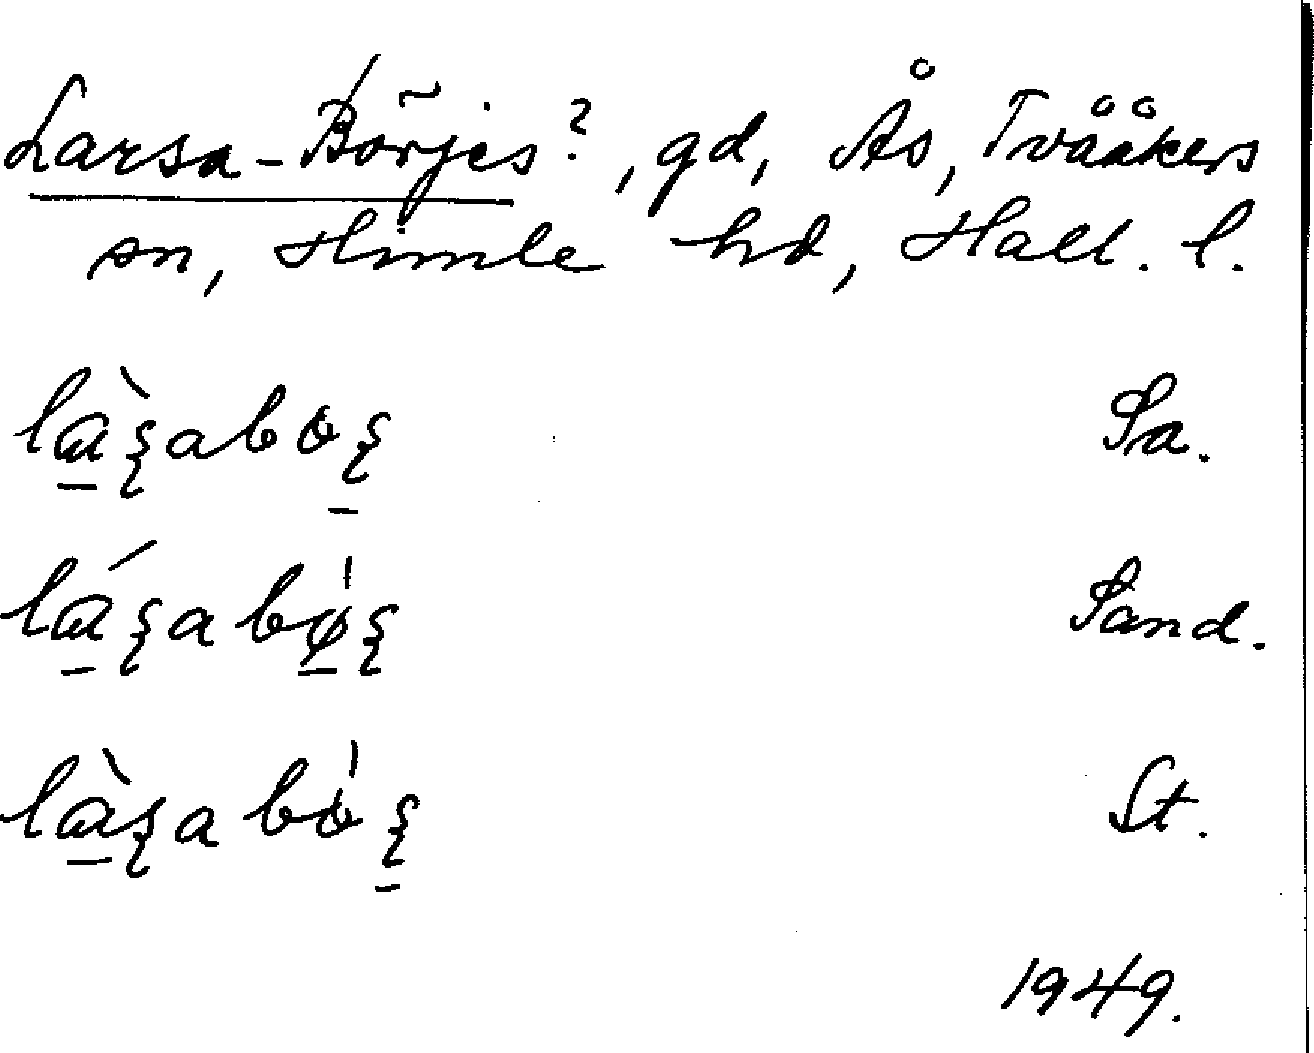 Larsa-Börjes?, gd, Ås, Tvååkers
sn, Himle hd, Hall. l.
là̱ʂaboʂ̱ Sa.
lá̱ʂabǿ̱ʂ Sand.
là̱ʂabòʂ̱ St.
1949.